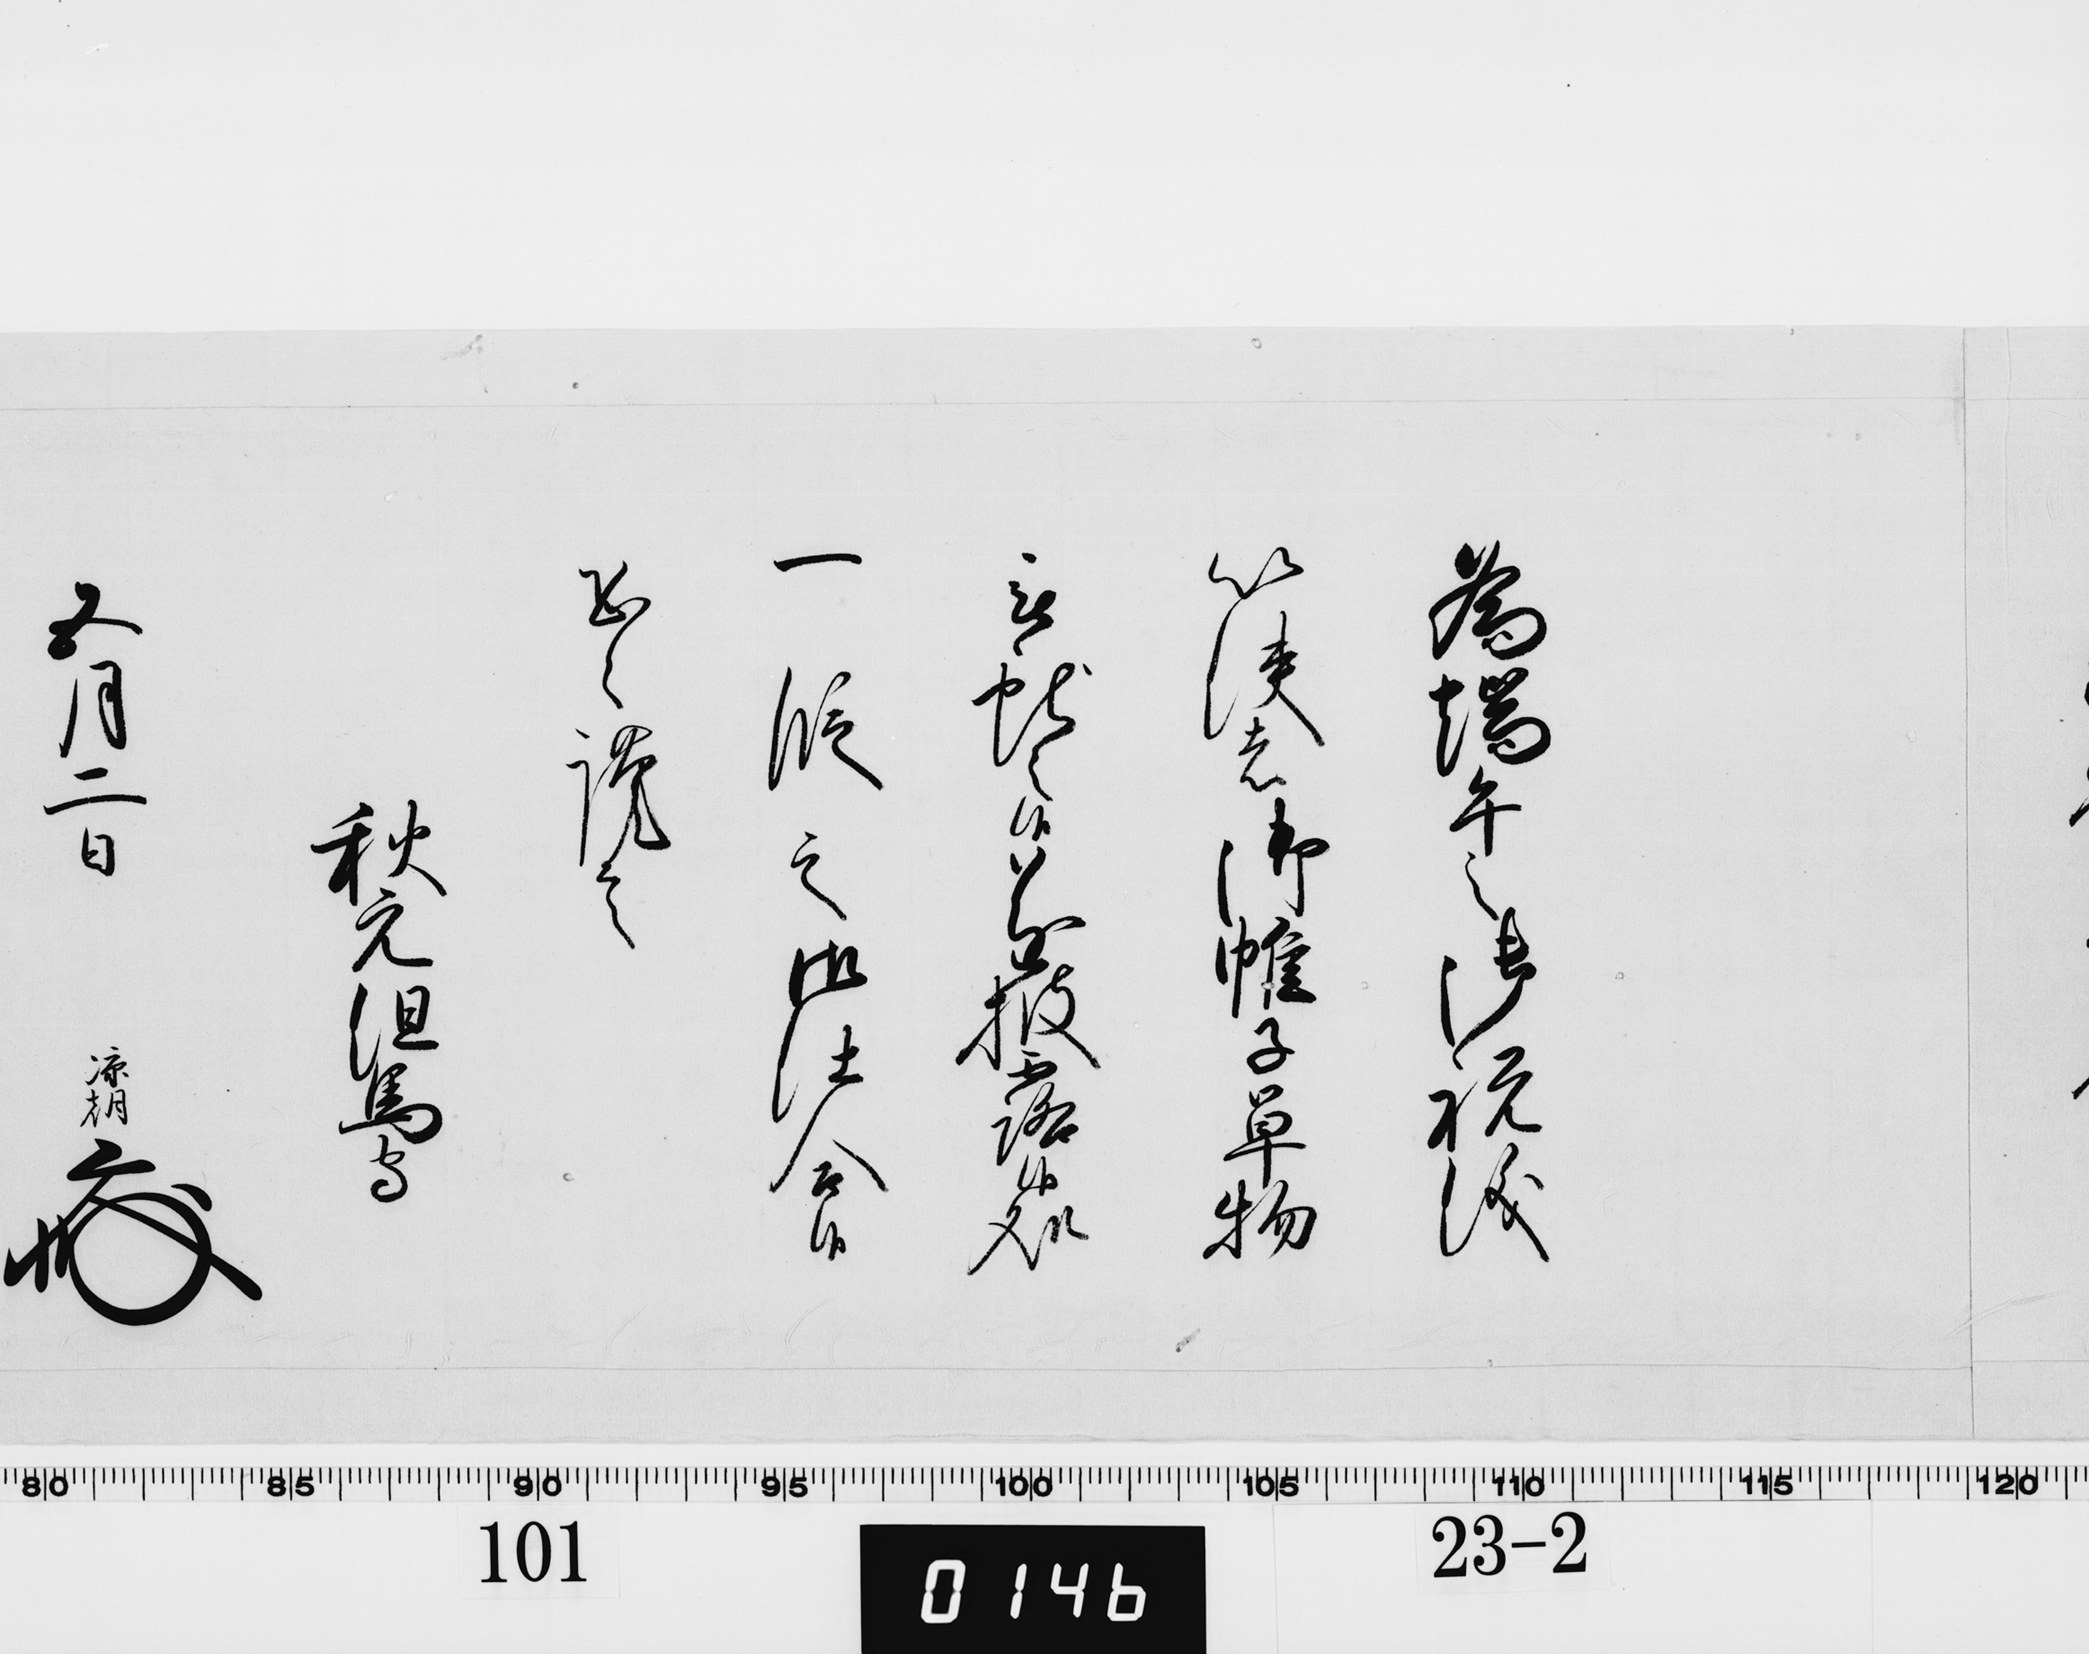 為端午之御祝儀
以使者御帷子単物
被献之候遂披露候処
一段之御仕合候
恐々謹言
秋元但馬守
五月二日
凉朝
80 85 90 95 100 105 110 115 120
101
0146
23-2